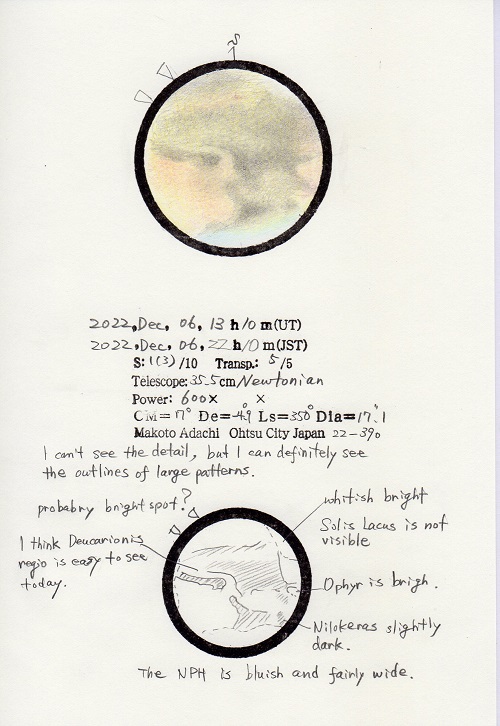 S
2022, Dec, 06, 13 h 10 m (UT)
2022, Dec, 06, 22 h 10 m (JST)
S: 1(3) /10 Transp.: 5 /5
Telescope: 35.5cm/Newtonian
Power: 600× ×
CM= 17° De= -4.9° Ls= 350° Dia= 17."1
Makoto Adachi Ohtsu City Japan 22-390
I can't see the detail, but I can definitely see
the outlines of large patterns.
probabry bright spot?
whitish bright
Solis Lacus is not
visible
I think Deucarionis
regio is easy to see
today.
Ophyr is brigh.
Nilokeras slightly
dark.
The NPH is bluish and fairly wide.